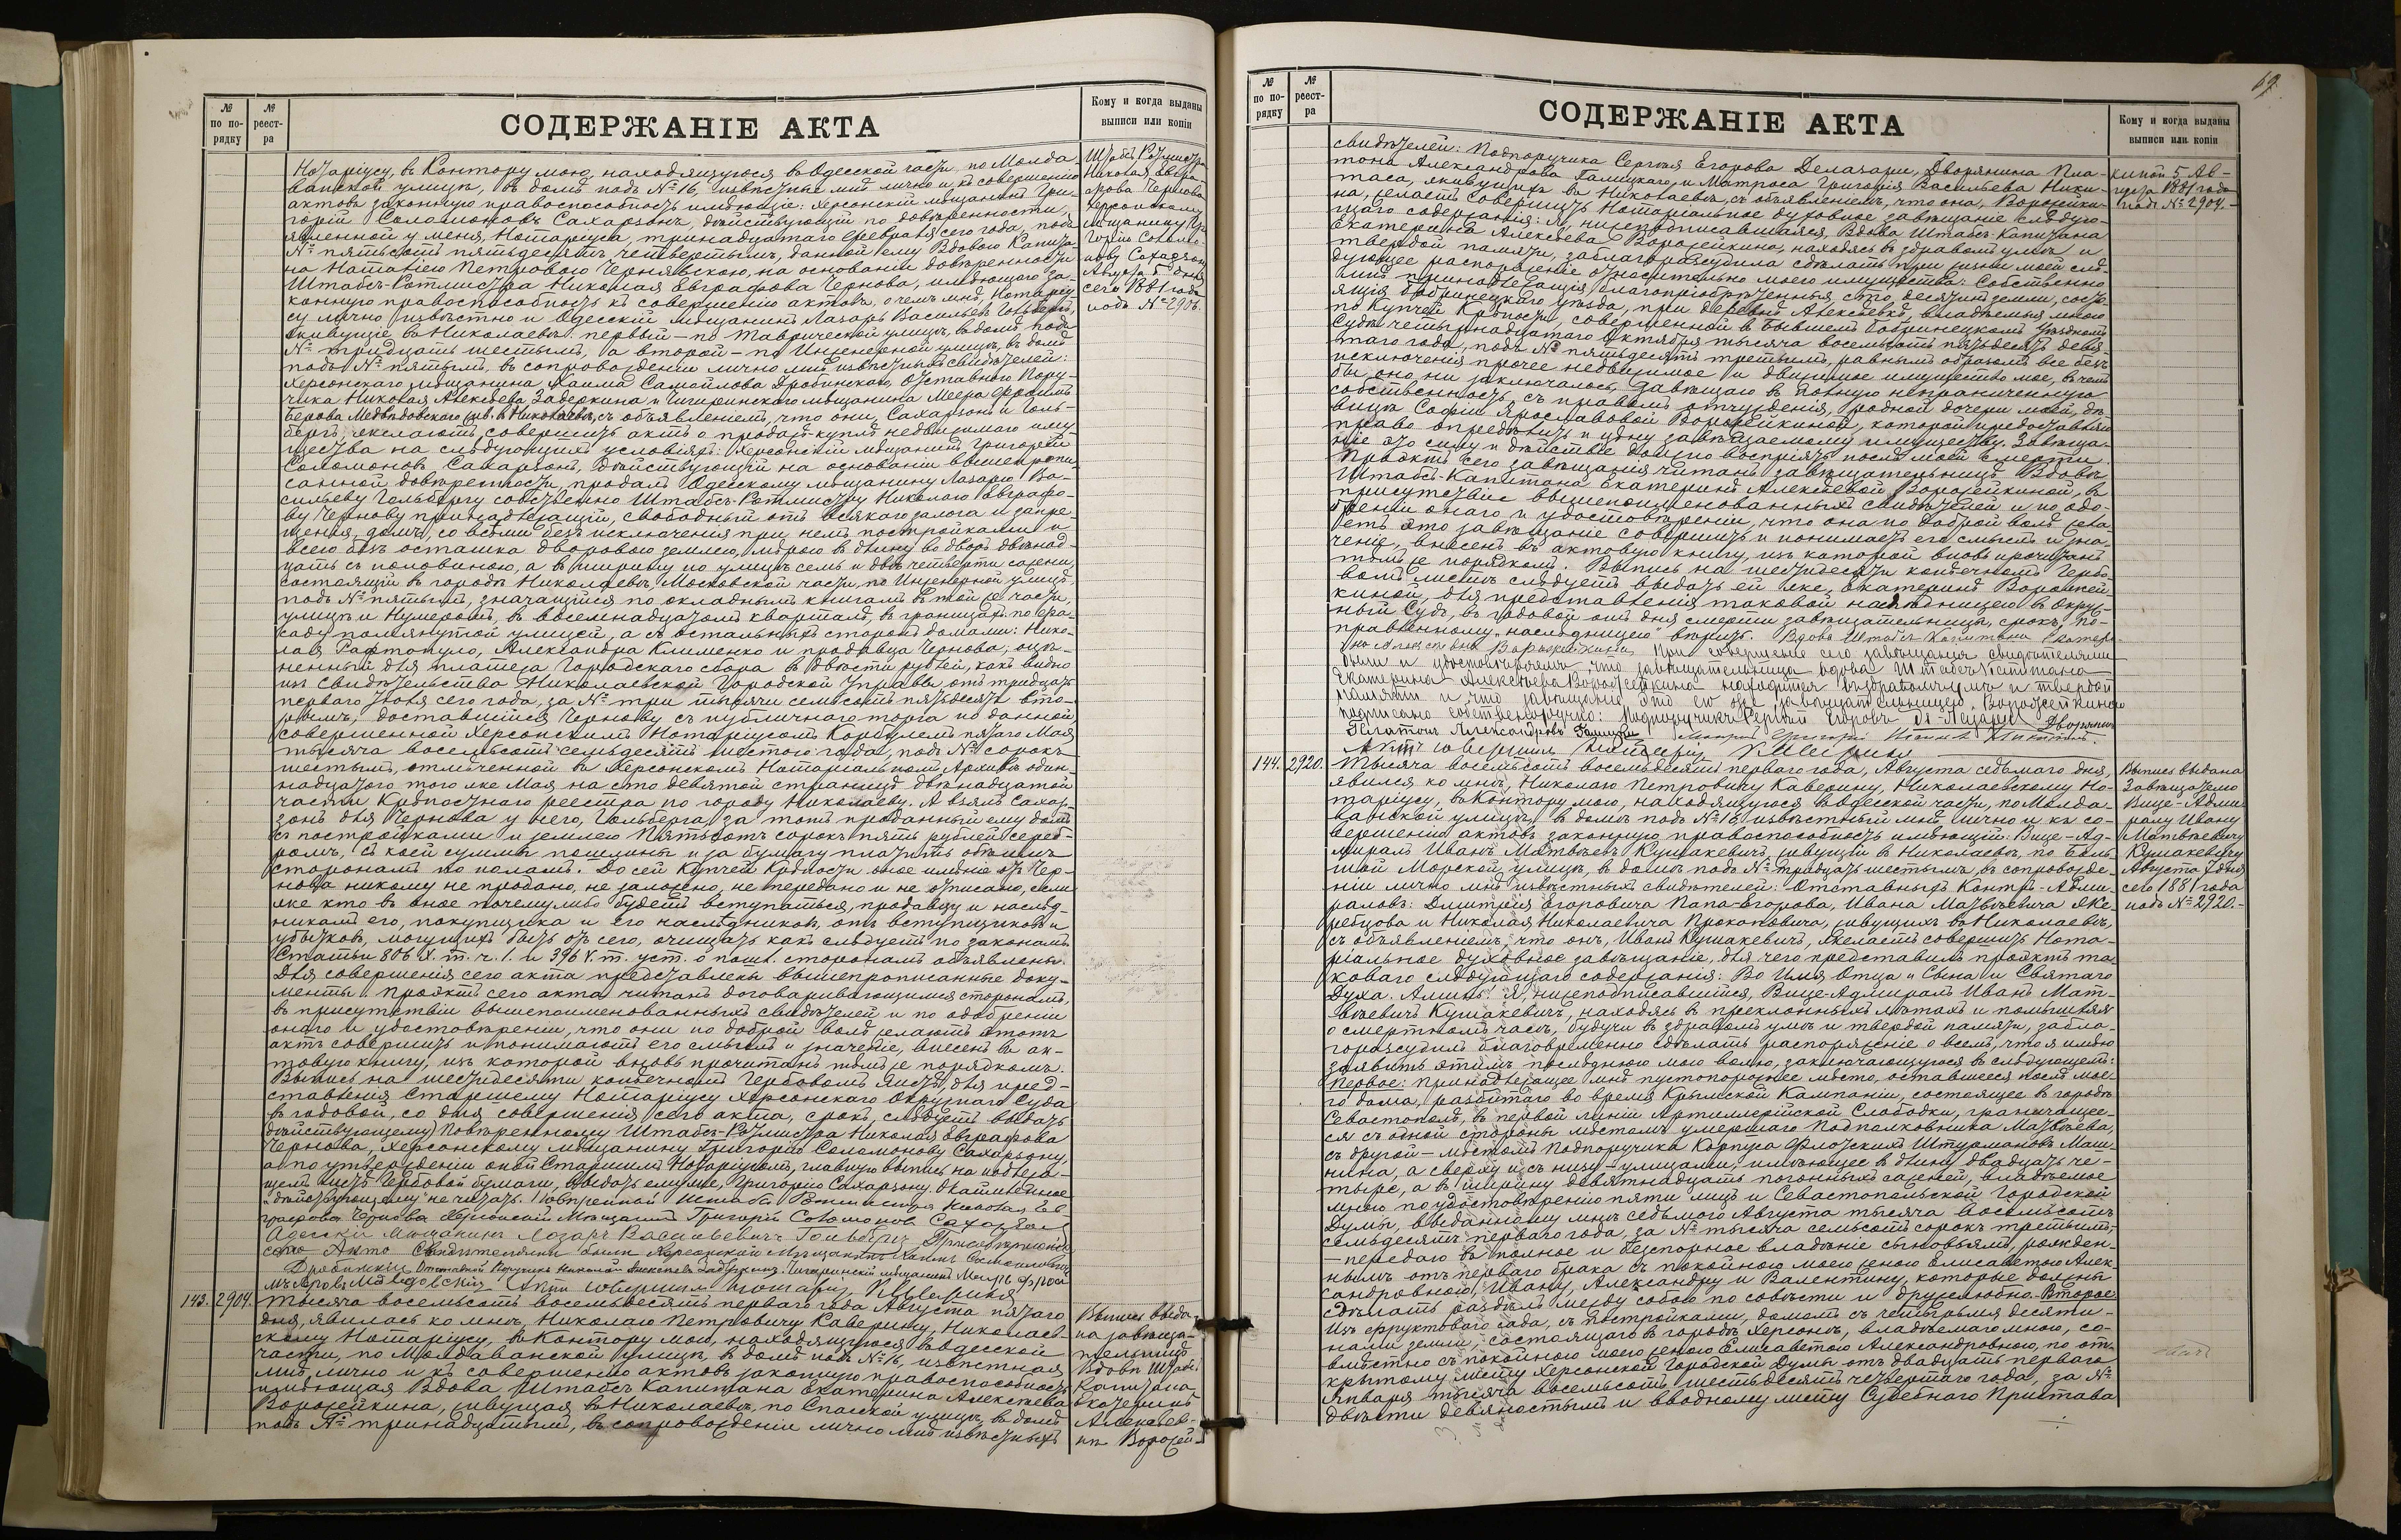 № по порядку
№ реестра
СОДЕРЖАНІЕ АКТА
Кому и когда выданы выписи или копіи
Нотаріусу, въ Контору мою, находящуюся въ Одесской части, по Молда-
ванской улицѣ, въ домѣ подъ № 16, извѣстные мнѣ лично и къ совершенію
актовъ законную правоспособность имѣющіе: Херсонскій мѣщанинъ Гри-
горій Соломоновъ Сахарзонъ, дѣйствующій по довѣренности,
явленной у меня, Нотаріуса, тринадцатаго Февраля сего года, подъ
№ пятьсотъ пятьдесятъ четвертымъ, данной ему Вдовою Капита-
на Наталіею Петровою Чернявскою, на основаніи довѣренности
Штабсъ-Ротмистра Николая Евграфова Чернова, имѣющаго за-
конную правоспособность къ совершенію актовъ, о чемъ мнѣ, Нотаріу-
су лично извѣстно и Одесскій мѣщанинъ Лазарь Васильевъ Гольбергъ,
живущіе въ Николаевѣ: первый - по Таврической улицѣ, въ домѣ подъ
№ тридцать шестымъ, а второй - по Инженерной улицѣ, въ домѣ
подъ № пятымъ, въ сопровожденіи лично мнѣ извѣстныхъ свидѣтелей:
Херсонскаго мѣщанина Хаима Самойлова Дробинскаго, Отставного Пору-
чика Николая Алексѣева Задеркина и Чигиринскаго мѣщанина Меера Фроимъ
Берова Медвѣдовскаго жив. въ Николаевѣ, съ объявленіемъ, что они, Сахарзонъ и Голь-
бергъ, желаютъ совершить актъ о продажѣ-куплѣ недвижимаго иму-
щества на слѣдующихъ условіяхъ: Херсонскій мѣщанинъ Григорій
Соломоновъ Сахарзонъ, дѣйствующій на основаніи вышепропи-
санной довѣренности, продалъ Одесскому мѣщанину Лазарю Ва-
сильеву Гольбергу собственно Штабсъ-Ротмистру Николаю Евграфо-
ву Чернову принадлежащій, свободный отъ всякаго залога и запре-
щенія, домъ, со всѣми безъ исключенія при немъ постройками и
всею безъ остатка дворовою землею, мѣрою въ длину во дворъ двѣнад-
цать съ половиною, а въ ширину по улицѣ семь и двѣ четверти сажени,
состоящій въ городѣ Николаевѣ, Московской части, по Инженерной улицѣ
подъ № пятымъ, значащійся по окладнымъ книгамъ въ той же части,
улицѣ и Нумеромъ, въ восемнадцатомъ кварталѣ, въ границахъ: по фа-
саду помянутой улицей, а съ остальныхъ сторонъ домами: Нико-
лая Рафтопуло, Александра Клименко и продавца Чернова; оцѣ-
ненный для платежа Городскаго сбора въ двѣсти рублей, какъ видно
изъ свидѣтельства Николаевской Городской Управы отъ тридцать
перваго Іюля сего года, за № три тысячи семьсотъ пятьдесятъ вто-
рымъ; доставшійся Чернову съ публичнаго торга по данной
совершенной Херсонскимъ Нотаріусомъ Корбулемъ пятаго Мая
тысяча восемьсотъ семьдесятъ шестого года, подъ № сорокъ
шестымъ, отмѣченной въ Херсонскомъ Нотаріальномъ Архивѣ один-
надцатаго того же Мая на сто девятой страницѣ двѣнадцатой
части Крѣпостнаго реестра по городу Николаеву. А взялъ Сахар-
зонъ для Чернова у него, Гольберга, за тотъ проданный ему домъ
съ постройками и землею Пятьсотъ сорокъ пять рублей сереб-
ромъ, съ коей суммы пошлины и за бумагу платить обѣимъ
сторонамъ по поламъ. До сей Купчей Крѣпости оное имѣніе отъ Чер-
нова никому не продано, не заложено, не передано и не отписано, если
же кто въ оное почемулибо будетъ вступаться, продавцу и наслѣд-
никамъ его, покупщика и его наслѣдниковъ, отъ вступщиковъ и
убытковъ, могущихъ быть отъ сего, очищать какъ слѣдуетъ по законамъ
Статьи 806 X. т. ч. 1. и 396 V. т. уст. о пошл. сторонамъ объявлены.
Для совершенія сего акта представлены вышепрописанные доку-
менты. Проэктъ сего акта читанъ договаривающимся сторонамъ,
въ присутствіи вышепоименованныхъ свидѣтелей и по одобреніи
онаго и удостовѣреніи, что они по доброй волѣ желаютъ этотъ
актъ совершить и понимаютъ его смыслъ и значеніе, внесенъ въ ак-
товую книгу, изъ которой вновь прочитанъ тѣмъ же порядкомъ.
Выпись на шестидесяти копѣечномъ Гербовомъ листѣ, для пред-
ставленія Старшему Нотаріусу Херсонскаго Окружнаго Суда
въ годовой, со дня совершенія сего акта, срокъ, слѣдуетъ выдать
дѣйствующему Повѣренному Штабсъ-Ротмистра Николая Евграфова
Чернова, Херсонскому мѣщанину Григорію Соломонову Сахарзону,
а по утвержденіи оной Старшимъ Нотаріусомъ, главную выпись на надлежа-
щемъ листѣ Гербовой бумаги, выдать ему же, Григорію Сахарзону. Окаймленное
"дѣйствующему" не читать. Повѣренный Штабсъ Ротмистра Николая Ев-
графова Чернова Херсонскій Мѣщанинъ Григорій Соломоновъ Сахарзонъ
Одесскій Мѣщанинъ Лазарь Васильевичъ Гольбергъ При совершеніи
сего Акта Свидѣтелями были Херсонскій Мѣщанинъ Хаимъ Самойловъ
Дробинскій Отставной Поручикъ Николай Алексѣевъ Задеркинъ. Чигиринскій мѣщанинъ Мееръ Фроим
Беровъ Медведовскій Актъ совершилъ Нотаріусъ Н. Каверинъ
143. 2904. Тысяча восемьсотъ восемьдесятъ перваго года Августа пятаго
дня, явилась ко мнѣ, Николаю Петровичу Каверину, Николаев-
скому Нотаріусу, въ Контору мою, находящуюся въ Одесской
части, по Молдаванской улицѣ, въ домѣ подъ № 16, извѣстная
мнѣ лично и къ совершенію актовъ законную правоспособность
имѣющая Вдова Штабсъ Капитана Екатерина Алексѣева
Ворожейкина, живущая въ Николаевѣ, по Спасской улицѣ, въ домѣ
подъ № тринадцатымъ, въ сопровожденіи лично мнѣ извѣстныхъ
Штабсъ Ротмистра
Николая Евгра-
фова Чернова
Херсонскому
мѣщанину Гри-
горію Соломо-
нову Сахарзону
Августа 5 дня
сего 1881 года
подъ № 2905.
Выпись выда-
на завѣща-
тельницѣ
Вдовѣ Штабс.
Капитана
Екатеринѣ
Алексѣев-
нѣ Ворожей-
69.
№ по порядку
№ реестра
СОДЕРЖАНІЕ АКТА
Кому и когда выданы выписи или копіи
свидѣтелей: Подпоручика Сергѣя Егорова Делазари, Дворянина Пла-
тона Александрова Галицкаго и Матроса Григорія Васильева Ники-
таса, живущихъ въ Николаевѣ, съ объявленіемъ, что она, Ворожейки-
на, желаетъ совершить Нотаріальное духовное завѣщаніе слѣдую-
щаго содержанія: Я, нижеподписавшаяся, Вдова Штабсъ-Капитана
Екатерина Алексѣева Ворожейкина, находясь въ здравомъ умѣ и
твердой памяти, заблагоразсудила сдѣлать при жизни моей слѣ-
дующее распоряженіе относительно моего имущества: Собственно
мнѣ принадлежащія благопріобрѣтенныя сто десятинъ земли, состо-
ящія Бобринецкаго уѣзда, при деревнѣ Алексѣевкѣ, владѣемыя мною
по Купчей Крѣпости, совершенной въ Бывшемъ Бобринецкомъ Уѣздномъ
Судѣ четырнадцатаго Октября тысяча восемьсотъ пятьдесятъ девя-
таго года, подъ № пятьдесятъ третьимъ, равнымъ образомъ все безъ
исключенія прочее недвижимое и движимое имущество мое, въ чемъ
бы оно ни заключалось, завѣщаю въ полную неограниченную
собственность, съ правомъ отчужденія, родной дочери моей, дѣ-
вицѣ Софіи Ярославовой Ворожейкиной, которой предоставляю
право опредѣлить и цѣну завѣщаемому имуществу. Завѣща-
ніе это силу и дѣйствіе должно воспріять послѣ моей смерти.
Проэктъ сего завѣщанія читанъ завѣщательницѣ Вдовѣ
Штабсъ-Капитана Екатеринѣ Алексѣевой Ворожейкиной, въ
присутствіи вышепоименованныхъ свидѣтелей и по одо-
бреніи онаго и удостовѣреніи, что она по доброй волѣ жела-
етъ это завѣщаніе совершить и понимаетъ его смыслъ и зна-
ченіе, внесенъ въ актовую книгу, изъ которой вновь прочитанъ
тѣмъ же порядкомъ. Выпись на шестидесяти копѣечномъ Гербо-
вомъ листѣ слѣдуетъ выдать ей же, Екатеринѣ Ворожей-
киной, для представленія таковой наслѣдницею въ Окруж-
ный Судъ, въ годовой отъ дня смерти завѣщательницы, срокъ, По-
правленному "наслѣдницею" вѣрить. Вдова Штабсъ Капитана Екатери-
на Алексѣевна Ворожейкина. При совершеніи сего завѣщанія свидѣтелями
были и удостовѣряемъ что завѣщательница вдова Штабсъ Капитана
Екатерина Алексѣева Ворожейкина находится въ здравомъ умѣ и твердой
памяти и что завѣщаніе это ею же завѣщательницею Ворожейкиною
подписано собственноручно: Подпоручикъ Сергѣй Егоровъ Де-Лазари Дворянинъ
Платонъ Александровъ Галицкій Матросъ Григорій
Актъ совершилъ Нотаріусъ Н. Каверинъ
144. 2920. Тысяча восемьсотъ восемьдесятъ перваго года, Августа седьмаго дня,
явился ко мнѣ, Николаю Петровичу Каверину, Николаевскому Но-
таріусу, въ Контору мою, находящуюся въ Одесской части, по Молда-
ванской улицѣ, въ домѣ подъ № 16 извѣстный мнѣ лично и къ со-
вершенію актовъ законную правоспособность имѣющій: Вице-Ад-
миралъ Иванъ Матвѣевъ Кушакевичъ, живущій въ Николаевѣ, по Боль-
шой Морской улицѣ, въ домѣ подъ № тридцать шестымъ, въ сопровожде-
ніи лично мнѣ извѣстныхъ свидѣтелей: Отставныхъ Контръ-Адми-
раловъ: Дмитрія Егоровича Папа-Егорова, Ивана Матвѣевича Же-
ребцова и Николая Николаевича Прокоповича, живущихъ въ Николаевѣ,
съ объявленіемъ, что онъ, Иванъ Кушакевичъ, желаетъ совершить Нота-
ріальное духовное завѣщаніе, для чего представилъ проэктъ та-
коваго слѣдующаго содержанія: Во Имя Отца и Сына и Святаго
Духа. Аминь. Я, нижеподписавшійся, Вице-Адмиралъ Иванъ Мат-
вѣевичъ Кушакевичъ, находясь въ преклонныхъ лѣтахъ и помышляя
о смертномъ часѣ, будучи въ здравомъ умѣ и твердой памяти, забла-
горазсудилъ благовременно сдѣлать распоряженіе о всемъ, что я имѣю
заявить этимъ послѣднюю мою волю, заключающуюся въ слѣдующемъ:
Первое: Принадлежащее мнѣ пустопорожнее мѣсто, оставшееся послѣ мое-
го дома, разбитаго во время Крымской Кампаніи, состоящее въ городѣ
Севастополѣ, въ первой линіи Артиллерійской Слободки, граничащее-
ся съ одной стороны мѣстомъ умершаго Подполковника Матвѣева,
съ другой - мѣстомъ Подпоручика Корпуса Флотскихъ Штурмановъ Маш-
нина, а сверху и съ низу - улицами, имѣющее въ длину двадцать че-
тыре, а въ ширину девятнадцать погонныхъ сажень, владѣемое
мною по удостовѣренію пяти лицъ и Севастопольской Городской
Думы, выданному мнѣ седьмого Августа тысяча восемьсотъ
семьдесятъ перваго года, за № тысяча семьсотъ сорокъ третьимъ,
- передаю въ полное и безспорное владѣніе сыновьямъ, рожден-
нымъ отъ перваго брака съ покойною моею женою Елисаветою Алек-
сандровною, Ивану, Александру и Валентину, которые должны
сдѣлать раздѣлъ между собою по совѣсти и дружелюбно. Второе
Изъ фруктоваго сада, съ постройками, домомъ съ четырьмя десяти-
нами земли, состоящаго въ городѣ Херсонѣ, владѣемаго мною, со-
вмѣстно съ покойною моею женою Елисаветою Александровною, по от-
крытому листу Херсонской Городской Думы отъ двадцать перваго
Января тысяча восемьсотъ шестьдесятъ четвертаго года, за №
двѣсти девяностымъ и вводному листу Судебнаго Пристава
киной 5 Ав-
густа 1881 года
подъ № 2904.-
Выпись выдана
Завѣщателю
Вице-Адми-
ралу Ивану
Матвѣевичу
Кушакевичу
Августа 7 дня
сего 1881 года
подъ № 2920.-